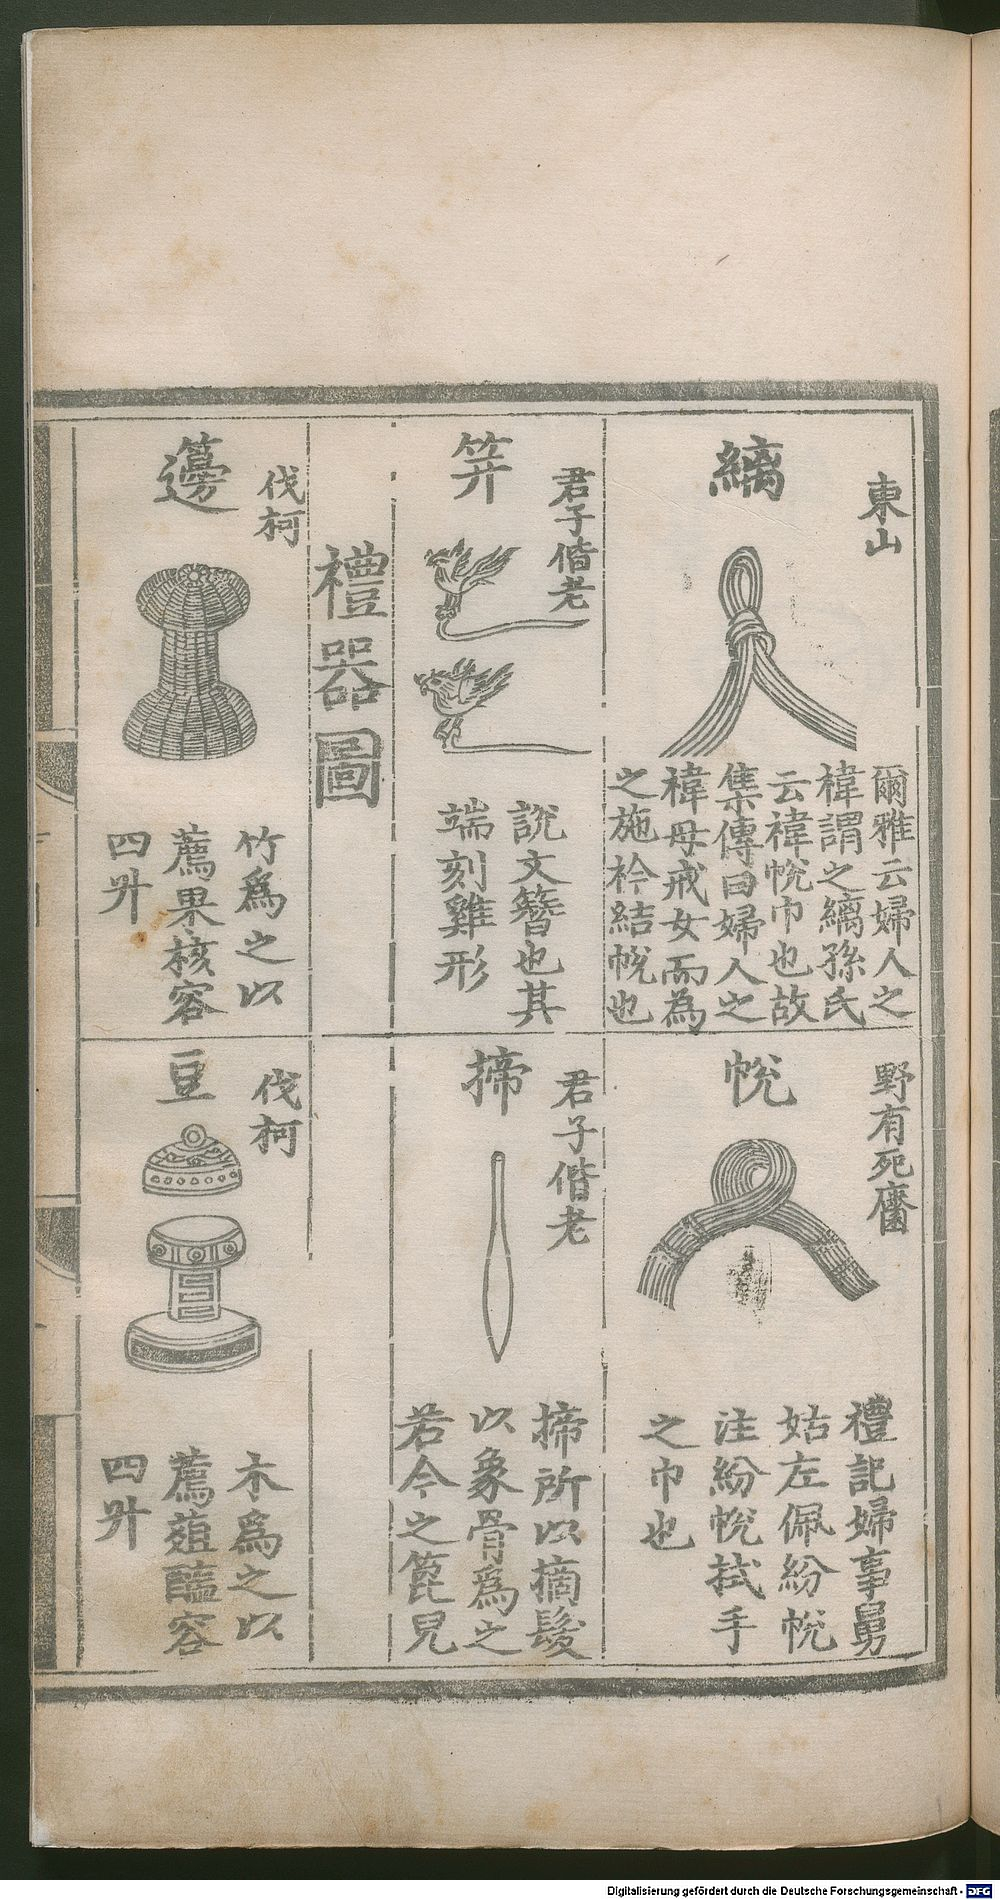 東山
縭
爾雅云婦人之
褘謂之縭孫氏
云褘帨巾也故
集傳曰婦人之
褘母戒女而為
之施衿結帨也
野有死麕
帨
禮記婦事舅
姑左佩紛帨
注紛帨拭手
之巾也
君子偕老
笄
說文簪也其
端刻雞形
君子偕老
揥
揥所以摘髮
以象骨爲之
若今之篦兒
禮器圖
伐柯
籩
竹爲之以
薦果核容
四升
伐柯
豆
木爲之以
薦葅醢容
四升
Digitalisierung gefördert durch die Deutsche Forschungsgemeinschaft - DFG